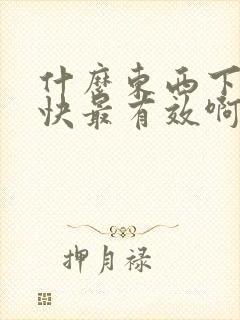 什麼東西下
快最有效啊
押月禄